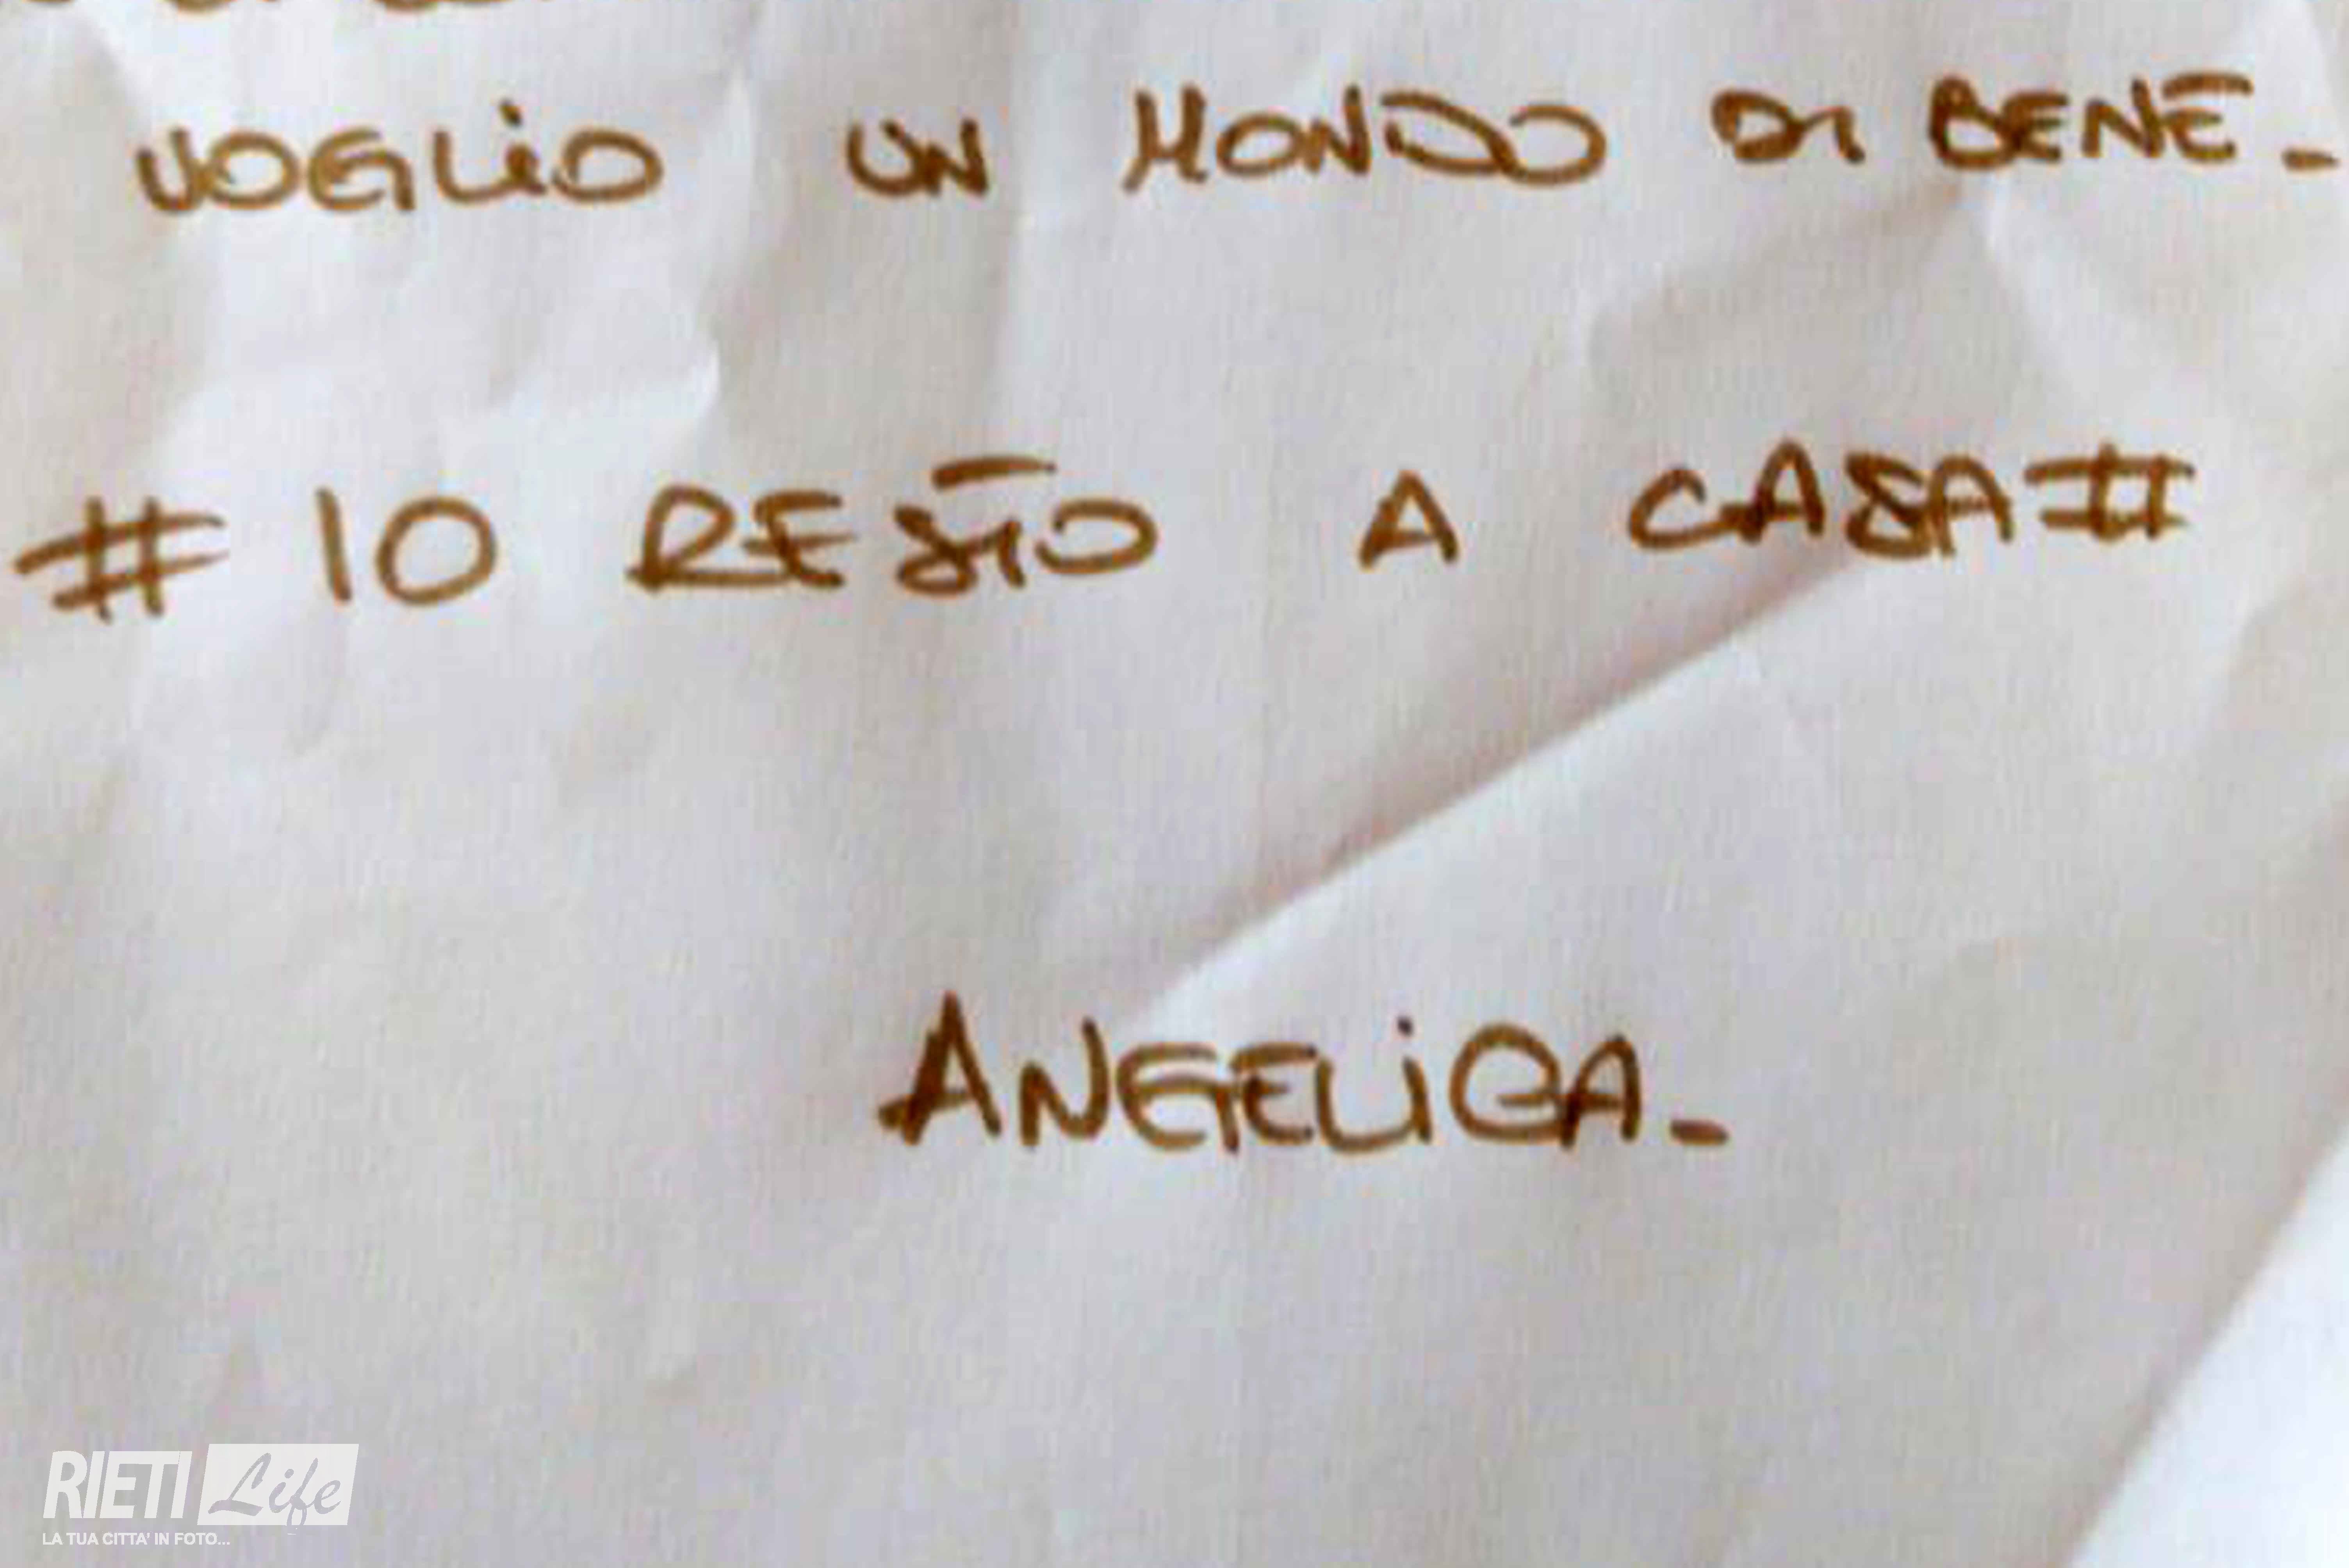 VOGLiO UN MONDO DI BENE.
# IO RESTO A CASA #
ANGELiCA.
RIETI Life
LA TUA CITTA' IN FOTO...